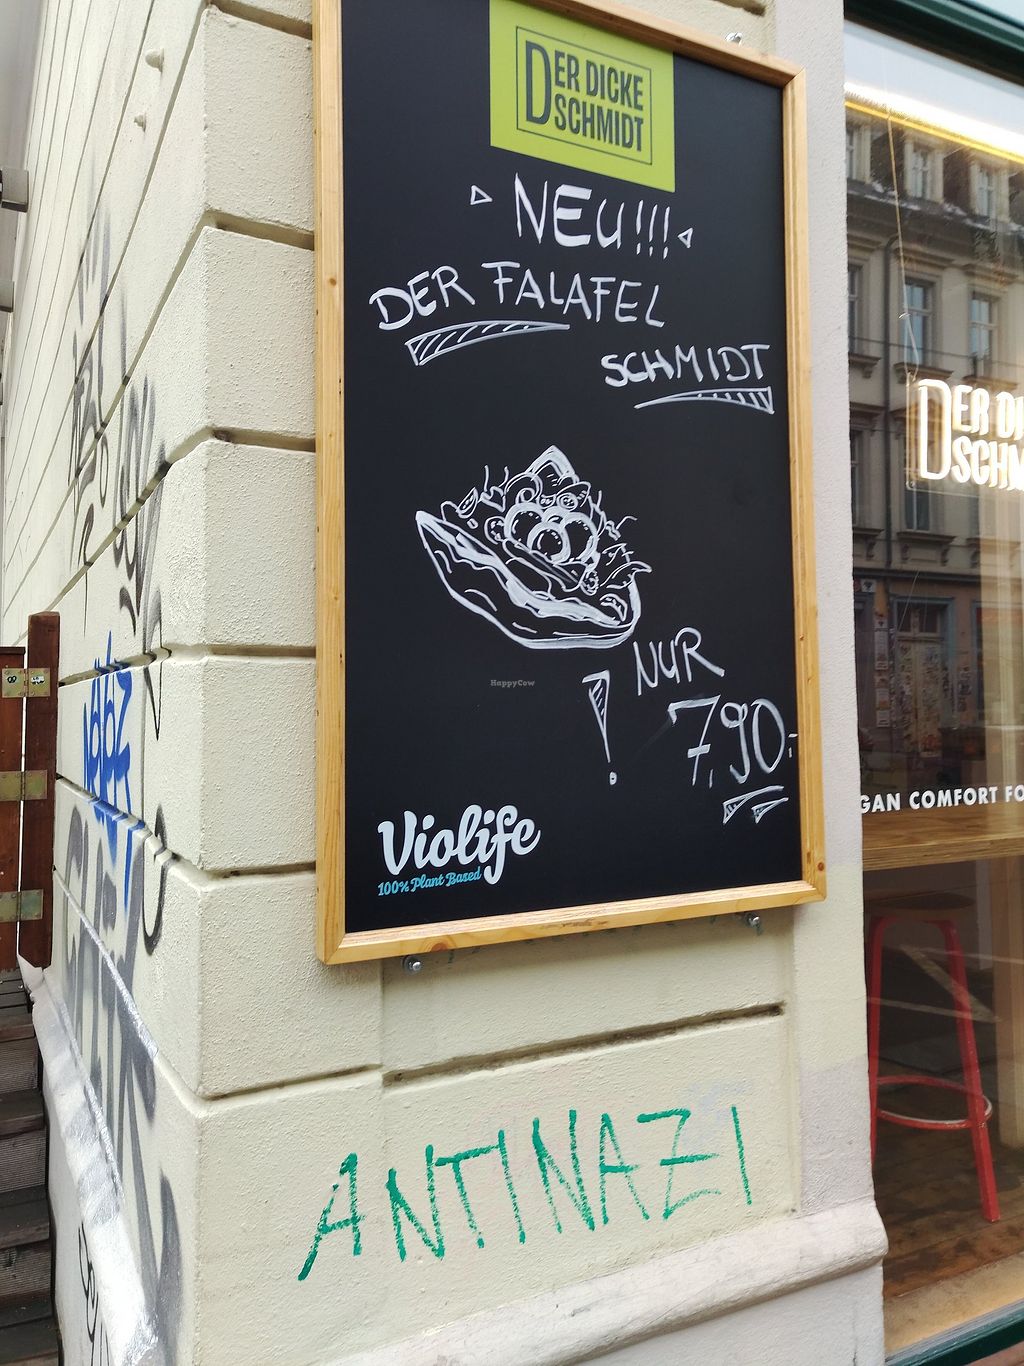 DER DICKE
SCHMIDT
NEU!!!
DER FALAFEL
SCHMIDT
NUR
! 7,90-
HappyCow
Violife
100% Plant Based
DER DI
SCHM
GAN COMFORT FO
ANTINAZI